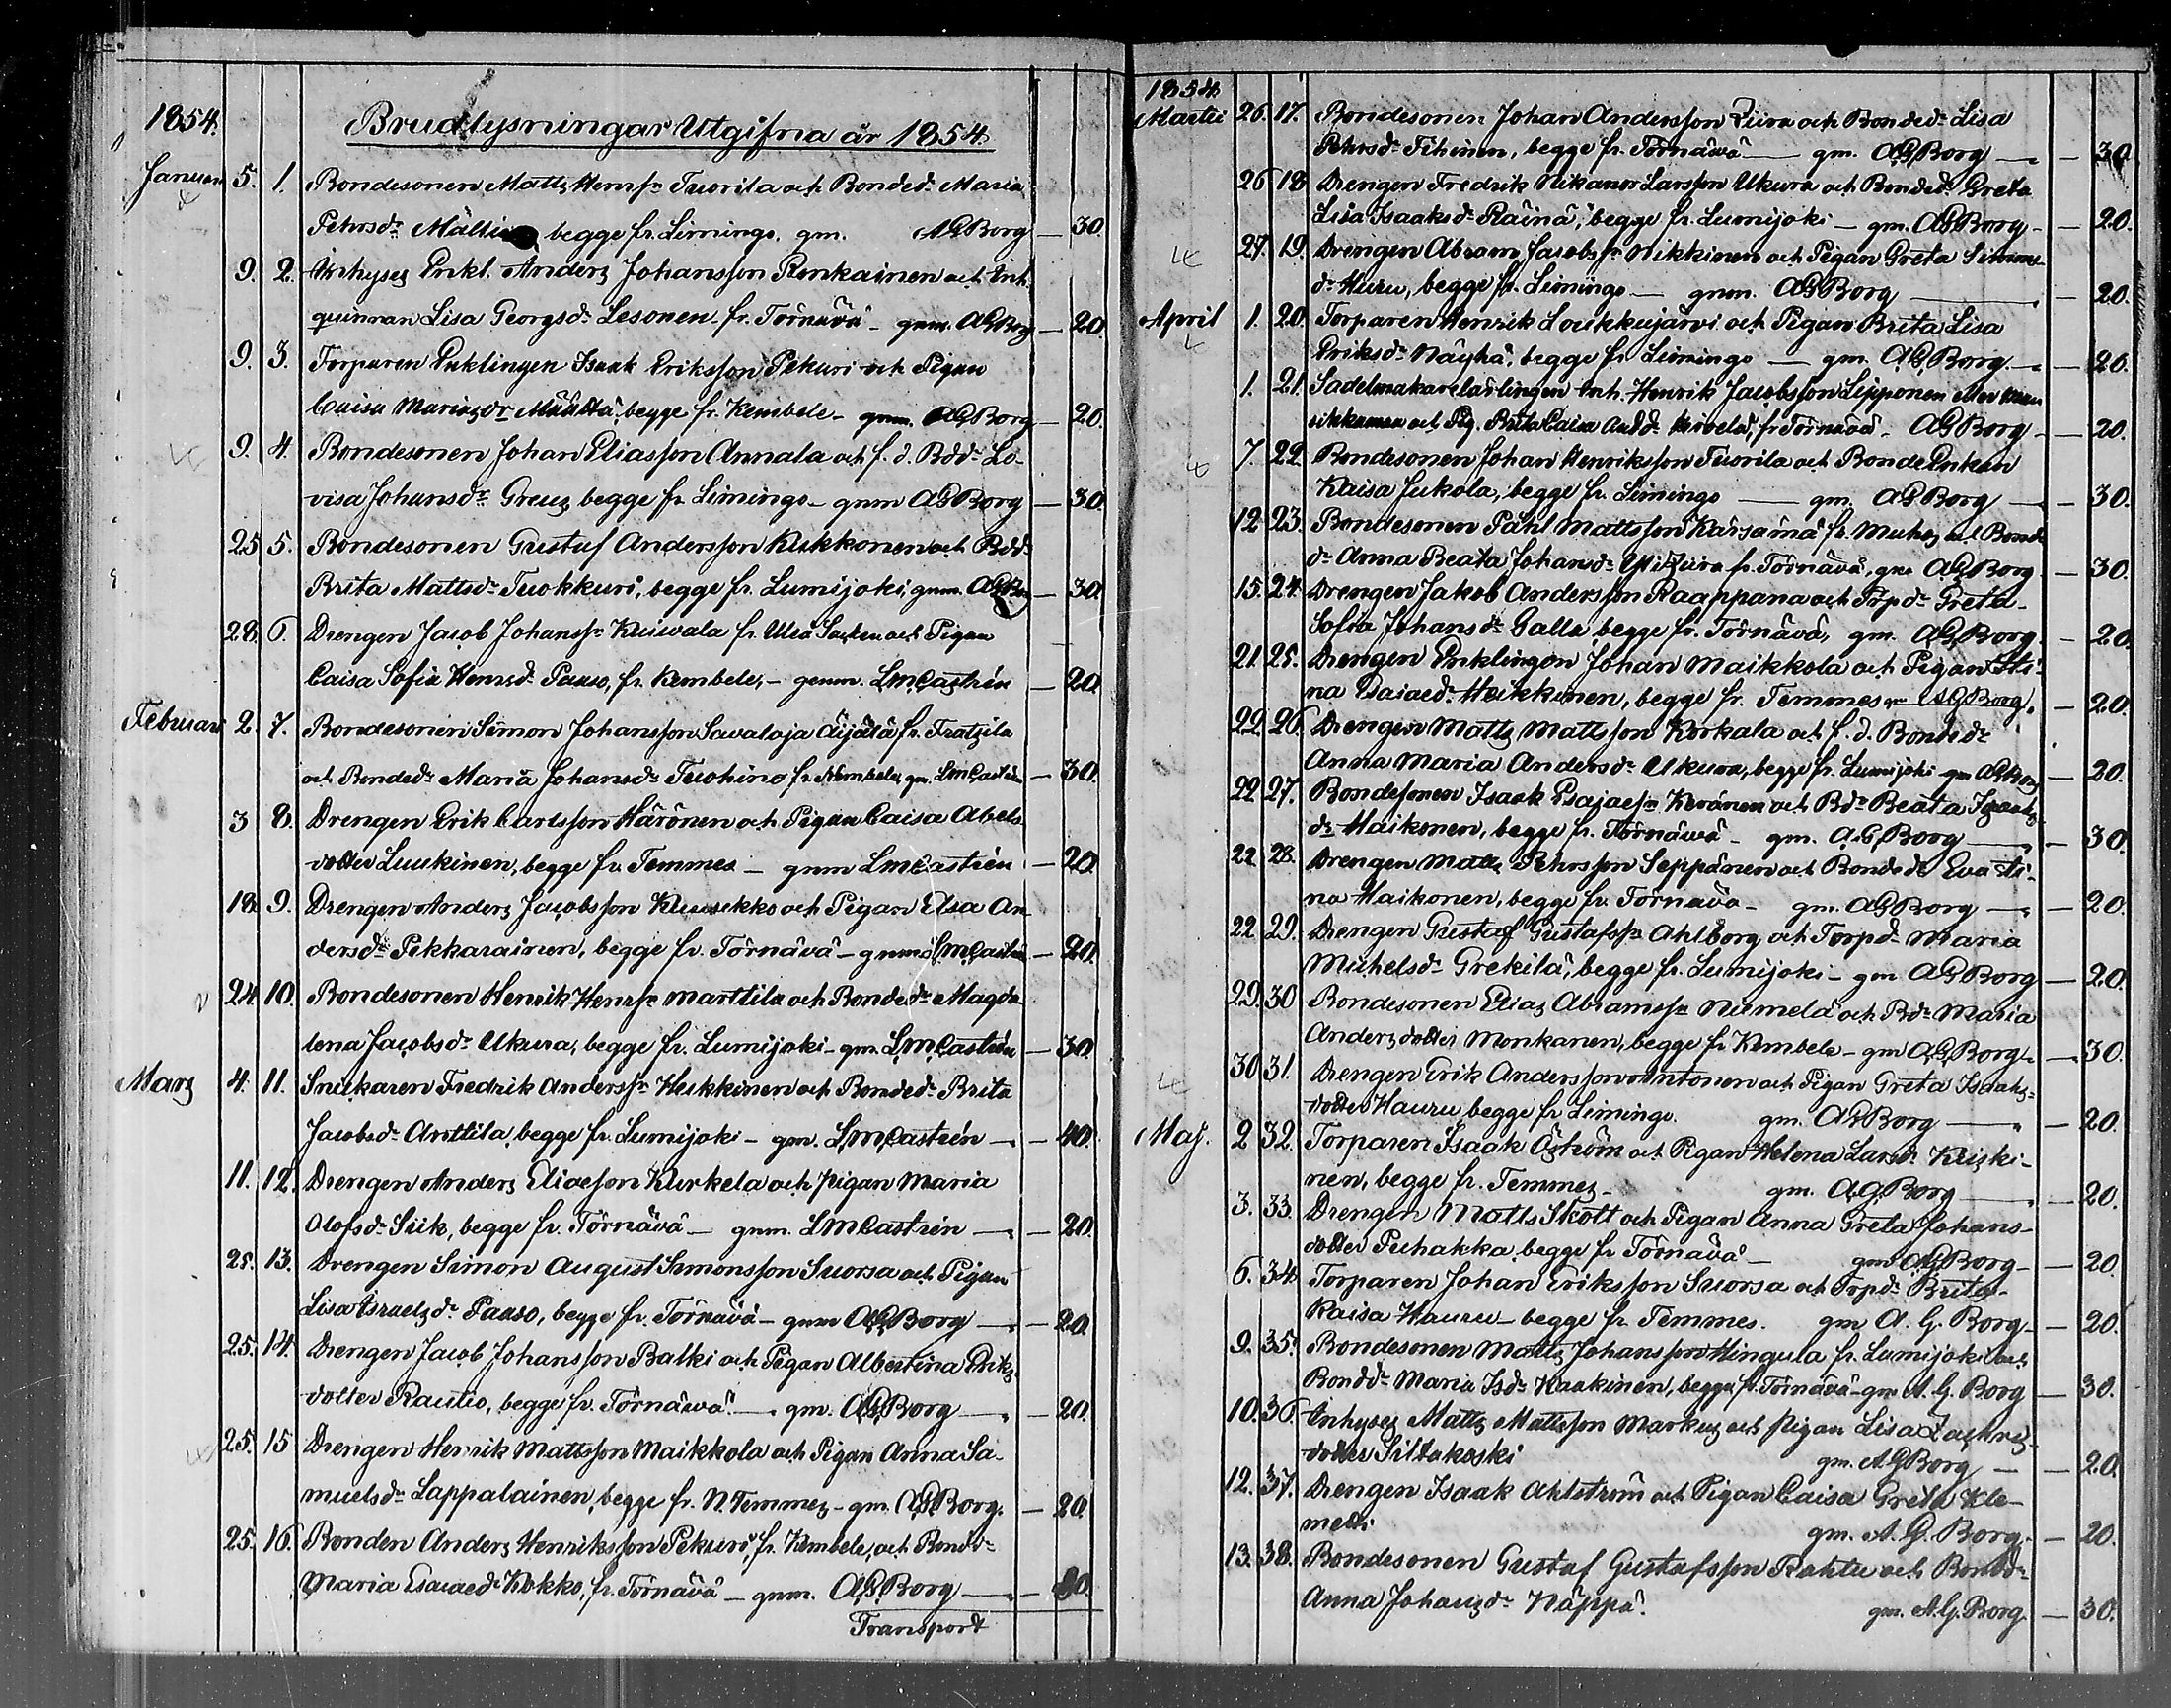 1854.
Brudlysningar Utgifna år 1854.
Januari 5. 1. Bondesonen Matts Henrss. Tuorila och Bonded:r Maria
Pehrsd:r begge fr. Limingo. gm. AGBorg — 30.
9. 2. Inhyses Enkl. Anders Johansson Ronkainen och Inh.
quinnan Lisa Georgsd:r Lesonen fr. Törnävä — gnm. AGBorg — 20.
9. 3. Torparen Enklingen Isaak Eriksson Pekuri och Pigan
Caisa Mariasd:r Määttä begge fr. Kembele — gnm. AGBorg — 20.
9. 4. Bondesonen Johan Eliasson Annala och f. d. Bdd:r Lo-
visa Johansd:r Greus begge fr Limingo — gnm AGBorg — 30.
25 5. Bondesonen Gustaf Andersson Kukkonen och Bdd:r
Brita Mattsd:r Tuokkuri, begge fr. Lumijoki, gnm. AGBorg — 30.
28. 6. Drengen Jacob Johanss. Keiwala fr. Uleå Socken och Pigan
Caisa Sofia Henrsd. Paaso, fr. Kembele, — genm. LMCastrén — 20.
Februari 2. 7. Bondesonen Simon Johansson Savaloja Äijälä fr. Fratzila
och Bonded:r Maria Johansd:r Tuohino fr Kembele, gm. LMCastrén — 30.
3 8. Drengen Erik Carlsson Härönen och Pigan Caisa Abels
dotter Luukinen, begge fr. Temmes — gnm LMCastrén — 20.
18. 9. Drengen Anders Jacobsson Kuusikko och Pigan Elsa An-
dersd:r Pekkarainen, begge fr. Törnävä — gnm LMCastrén — 20.
24. 10. Bondesonen Henrik Henrss. Marttila och Bonded:r Magda
lena Jacobsd:r Ukura, begge fr. Lumijoki — gm. LMCastrén — 30.
Mars 4. 11. Snikaren Fredrik Anderss. Heikkinen och Bonded:r Brita
Jacobsd:r Anttila, begge fr. Lumijoki — gm. LMCastrén — 40.
11. 12. Drengen Anders Eliasson Kurkela och pigan Maria
Olofsd:r Siik, begge fr. Törnävä — gnm. LMCastrén — 20.
25. 13. Drengen Simon August Simonsson Suorsa och Pigan
Lisa Israelsd:r Paaso, begge fr. Törnävä — gnm AGBorg — 20.
25. 14. Drengen Jacob Johansson Balki och Pigan Albertina Eriks
dotter Rautio, begge fr. Törnäwä. — gm. AGBorg — 20.
25. 15 Drengen Henrik Mattsson Maikkola och Pigan Anna Sa-
muelsd:r Lappalainen, begge fr. N. Temmes — gm. AGBorg. — 20.
25. 16. Bonden Anders Henriksson Pekuri, fr. Kembele, och Bondd:r
Maria Esaiaed:r Kokko, fr. Törnävä — gnm. AGBorg — 30.
Transport
1854.
Martii 26. 17. Bondesonen Johan Andersson Ziura och Bonded:r Lisa
Pehrsd:r Tihinen, begge fr. Törnäwä — gm. AGBorg — 30.
26 18 Drengen Fredrik Nikanor Larsson Ukura och Bonded:r Greta
Lisa Isaaksd:r Rainä, begge fr. Lumijoki — gm. AGBorg — 20.
27. 19. Drengen Abram Jacobss. Nikkinen och Pigan Greta Simons-
d:r Huru, begge fr. Limingo — gnm. AGBorg — 20.
April 1. 20. Torparen Henrik Loukkujärvi och Pigan Brita Lisa
Eriksd:r Näyhä, begge fr Limingo — gm. AGBorg. — 20.
1. 21. Sadelmakarelärlingen Henrik Jacobsson Lipponen
och Pig. Brita Caisa And.d:r Kirvelä, fr Törnävä — AGBorg — 20.
7. 22. Bondesonen Johan Henriksson Tuorila och BondeEnkan
Kaisa Jukola, begge fr. Limingo — gm. AGBorg — 30.
12. 23. Bondesonen Påhl Mattsson Karsamä fr. Muhos och Bonde
d:r Anna Beata Johansd:r YliZiura fr. Törnävä, gm AGBorg — 30.
15. 24. Drengen Jakob Andersson Raappana och Torpd:r Greta
Sofia Johansd:r Galla begge fr. Törnävä, gm. AGBorg. — 20.
21. 25. Drengen Enklingen Johan Maikkola och Pigan Sti-
na Esaiaed:r Heikkinen, begge fr. Temmes gm AGBorg. — 20.
22. 26. Drengen Matts Mattsson Korkala och f. d. Bonded:r
Anna Maria Andersd:r Ukura, begge fr. Lumijoki gm AGBorg — 20.
22 27. Bondesonen Isaak Esajaess. Keränen och Bd:r Beata Isaaks
d:r Haikonen, begge fr. Törnäwä — gm. AGBorg — 30.
22 28. Drengen Matts Pehrsson Seppänen och Bonded:r Eva Sti-
na Haikonen, begge fr. Törnävä — gm. AGBorg — 20.
22 29. Drengen Gustaf Gustafss. Ahlborg och Torpd:r Maria
Michelsd:r Grekilä, begge fr. Lumijoki — gm AGBorg — 20.
29. 30 Bondesonen Elias Abramss. Niemelä och Bd:r Maria
Anders dotter Monkanen, begge fr Kembele — gm AGBorg — 30.
30. 31. Drengen Erik Andersson Antonen och Pigan Greta Isaaks-
dotter Hauru begge fr Limingo. gm. AGBorg — 20.
Maj. 2 32. Torparen Isaak Öström och Pigan Helena Larsd:r Keiski-
nen, begge fr. Temmes — gm. AGBorg — 20.
3. 33. Drengen Matts Skott och Pigan Anna Greta Johans-
dotter Puhakka begge fr Törnävä — gm AGBorg — 20.
6. 34. Torparen Johan Eriksson Suorsa och Torpd:r Brita
Kaisa Hauru — begge fr Temmes. gm A. G. Borg — 20.
9. 35. Bondesonen Matts Johansson Hingula fr. Lumijoki och
Bondd:r Maria Isd:r Haakinen, begge fr. Törnävä — gm A. G. Borg — 30.
10. 36. Inhyses Matts Mattsson Markus och pigan Lisa Zachris-
dotter Siltakoski gm. AGBorg — 20.
12. 37. Drengen Isaak Ahlström och Pigan Caisa Greta Kle-
metti gm. A. G. Borg. — 20.
13. 38. Bondesonen Gustaf Gustafsson Rahtu och Bondd:r
Anna Johansd:r Näppä. gm. A. G. Borg. — 30.